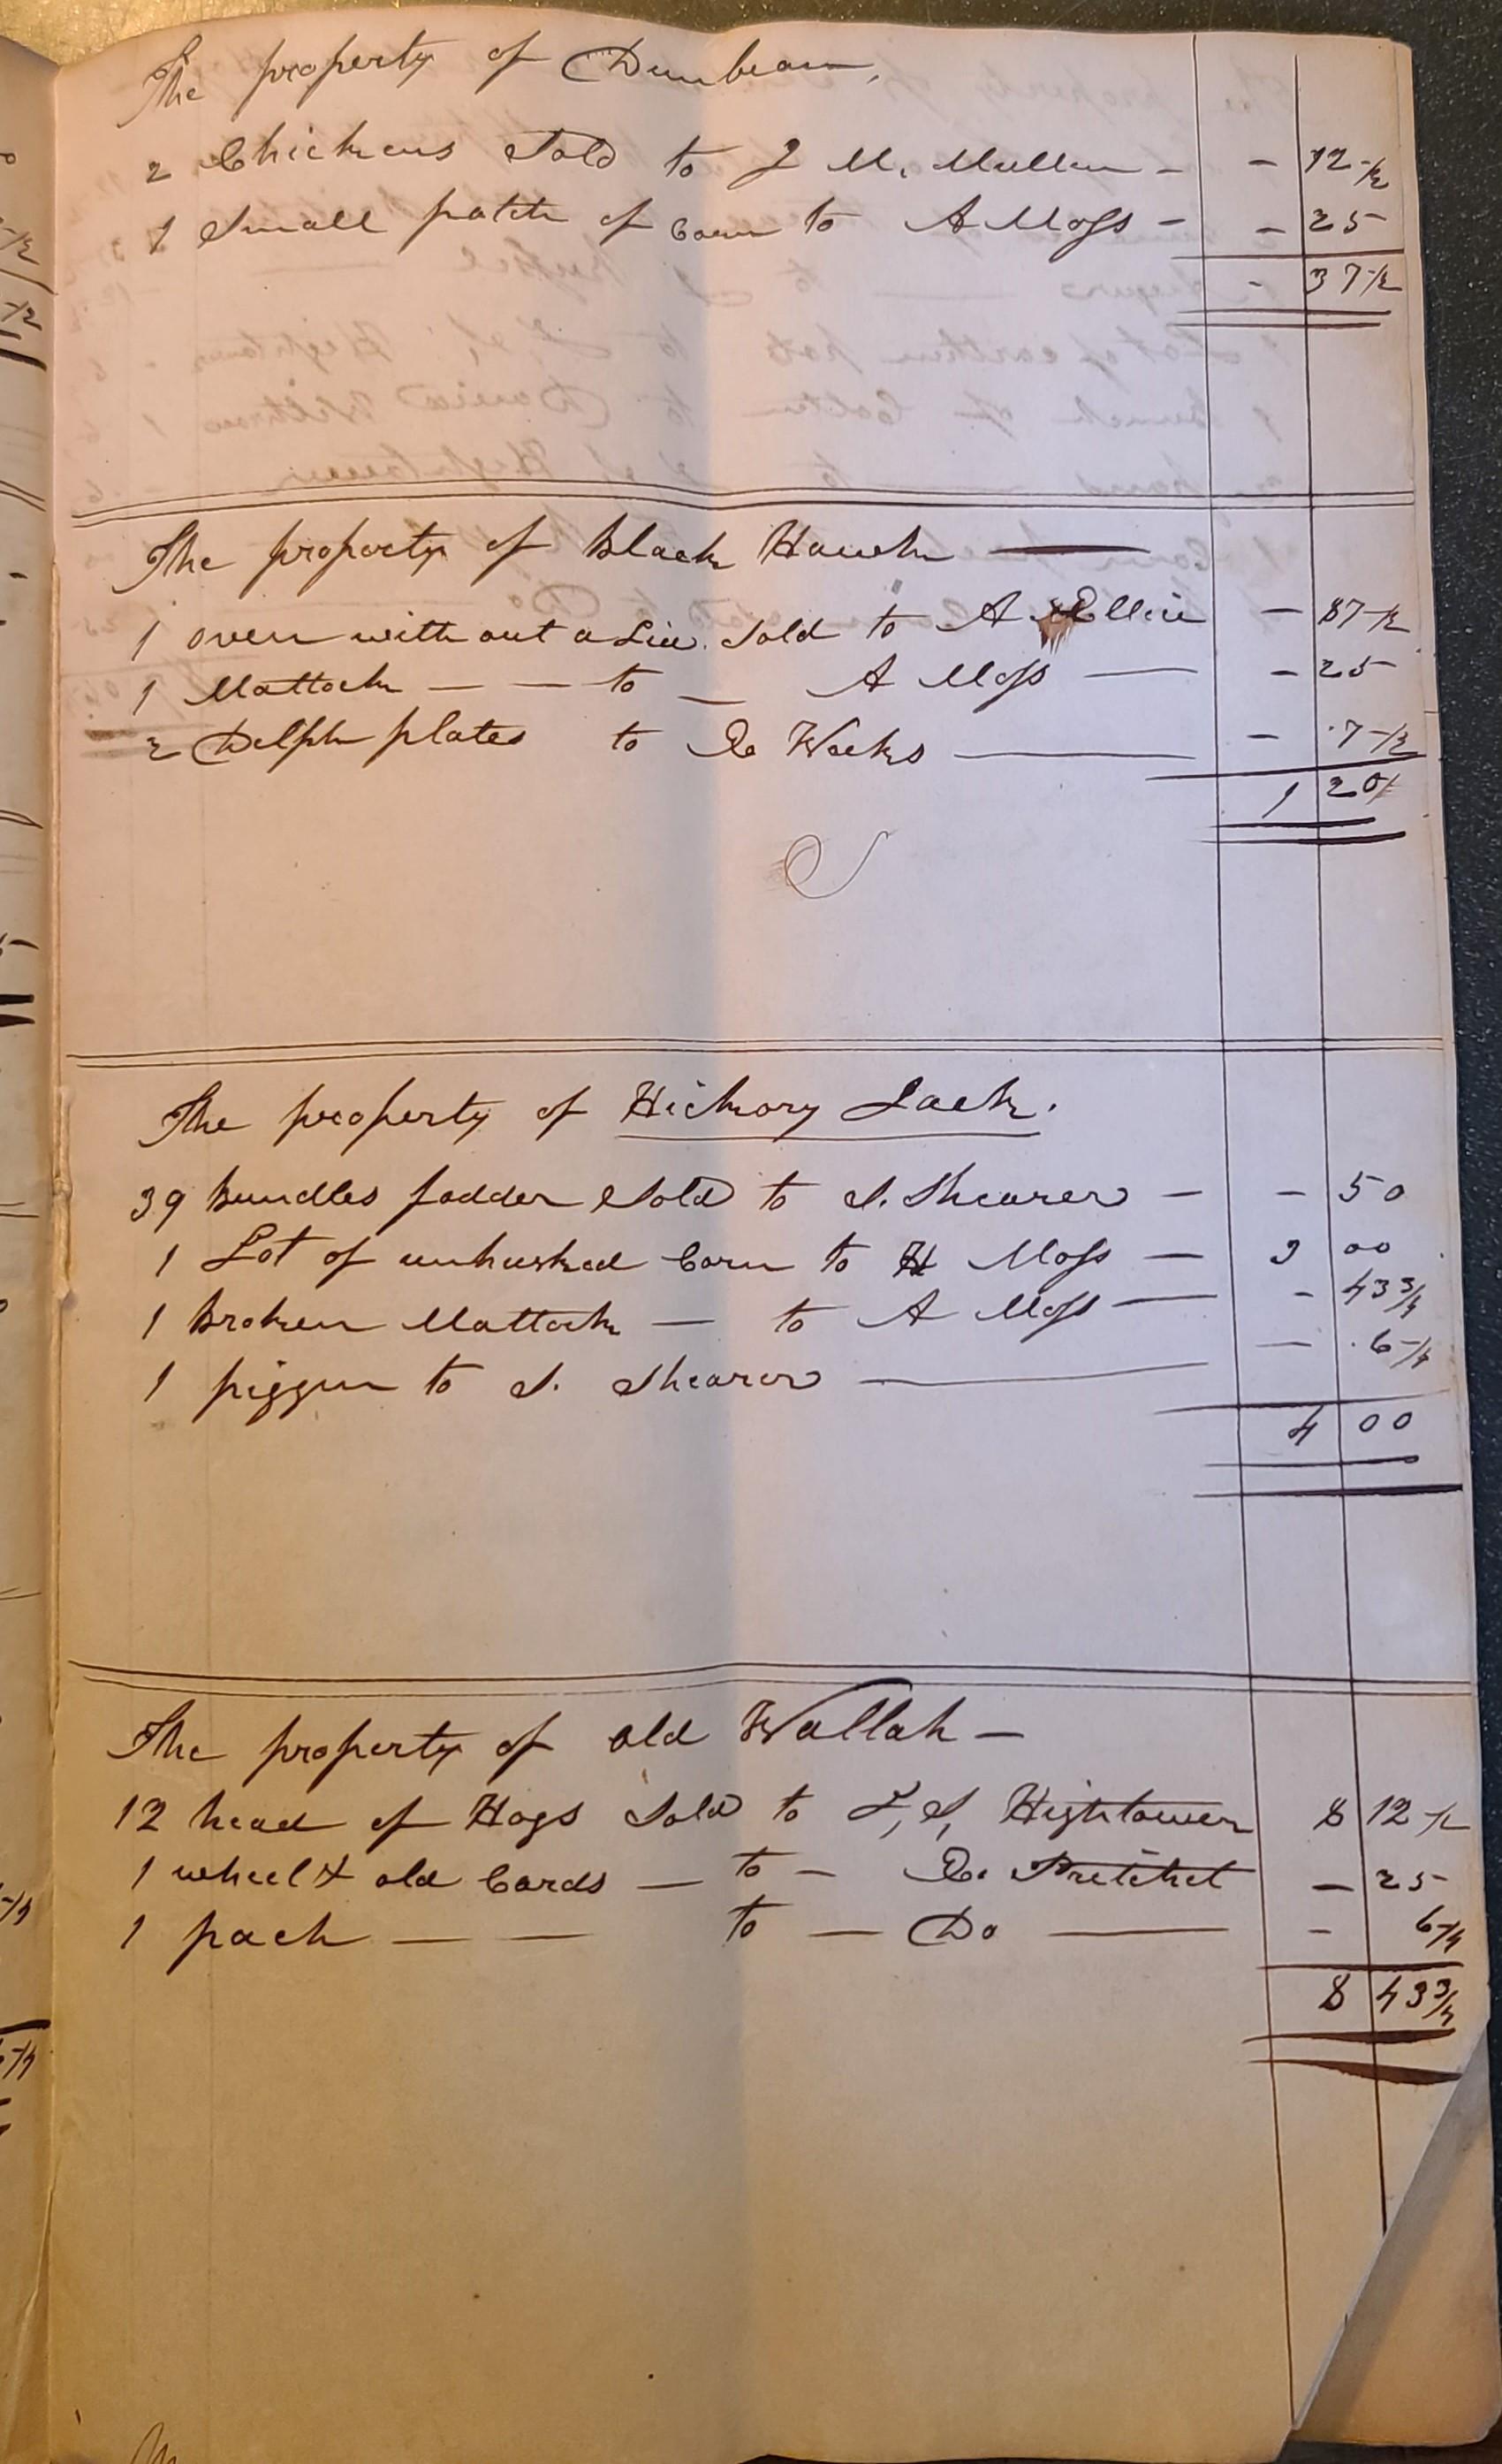 The property of Dunbean,
2 Chickens Sold to J M. Mullen - - 12 1/2
1 Small patch of Corn to A Moss - - 25
- 37 1/2
The property of Black Hawk
1 oven with out a Lid. Sold to A Ellis - 87 1/2
1 Mattock - - to - A Moss - - 25
2 Delph plates to Weeks - 7 1/2
1 20
The property of Hickory Jack.
39 bundles fodder Sold to S. Shearer - - 50
1 Lot of unhusked Corn to H Moss - 3 00
1 broken Mattock - to A Moss - - 43 3/4
1 piggin to S. Shearer - 6 1/4
4 00
The property of old Wallah -
12 head of Hogs Sold to J, S, Hightower 8 12 1/2
1 wheel & old Cards - to - Pritchet - 25
1 pack - - to - Do - - 6 1/4
8 43 3/4